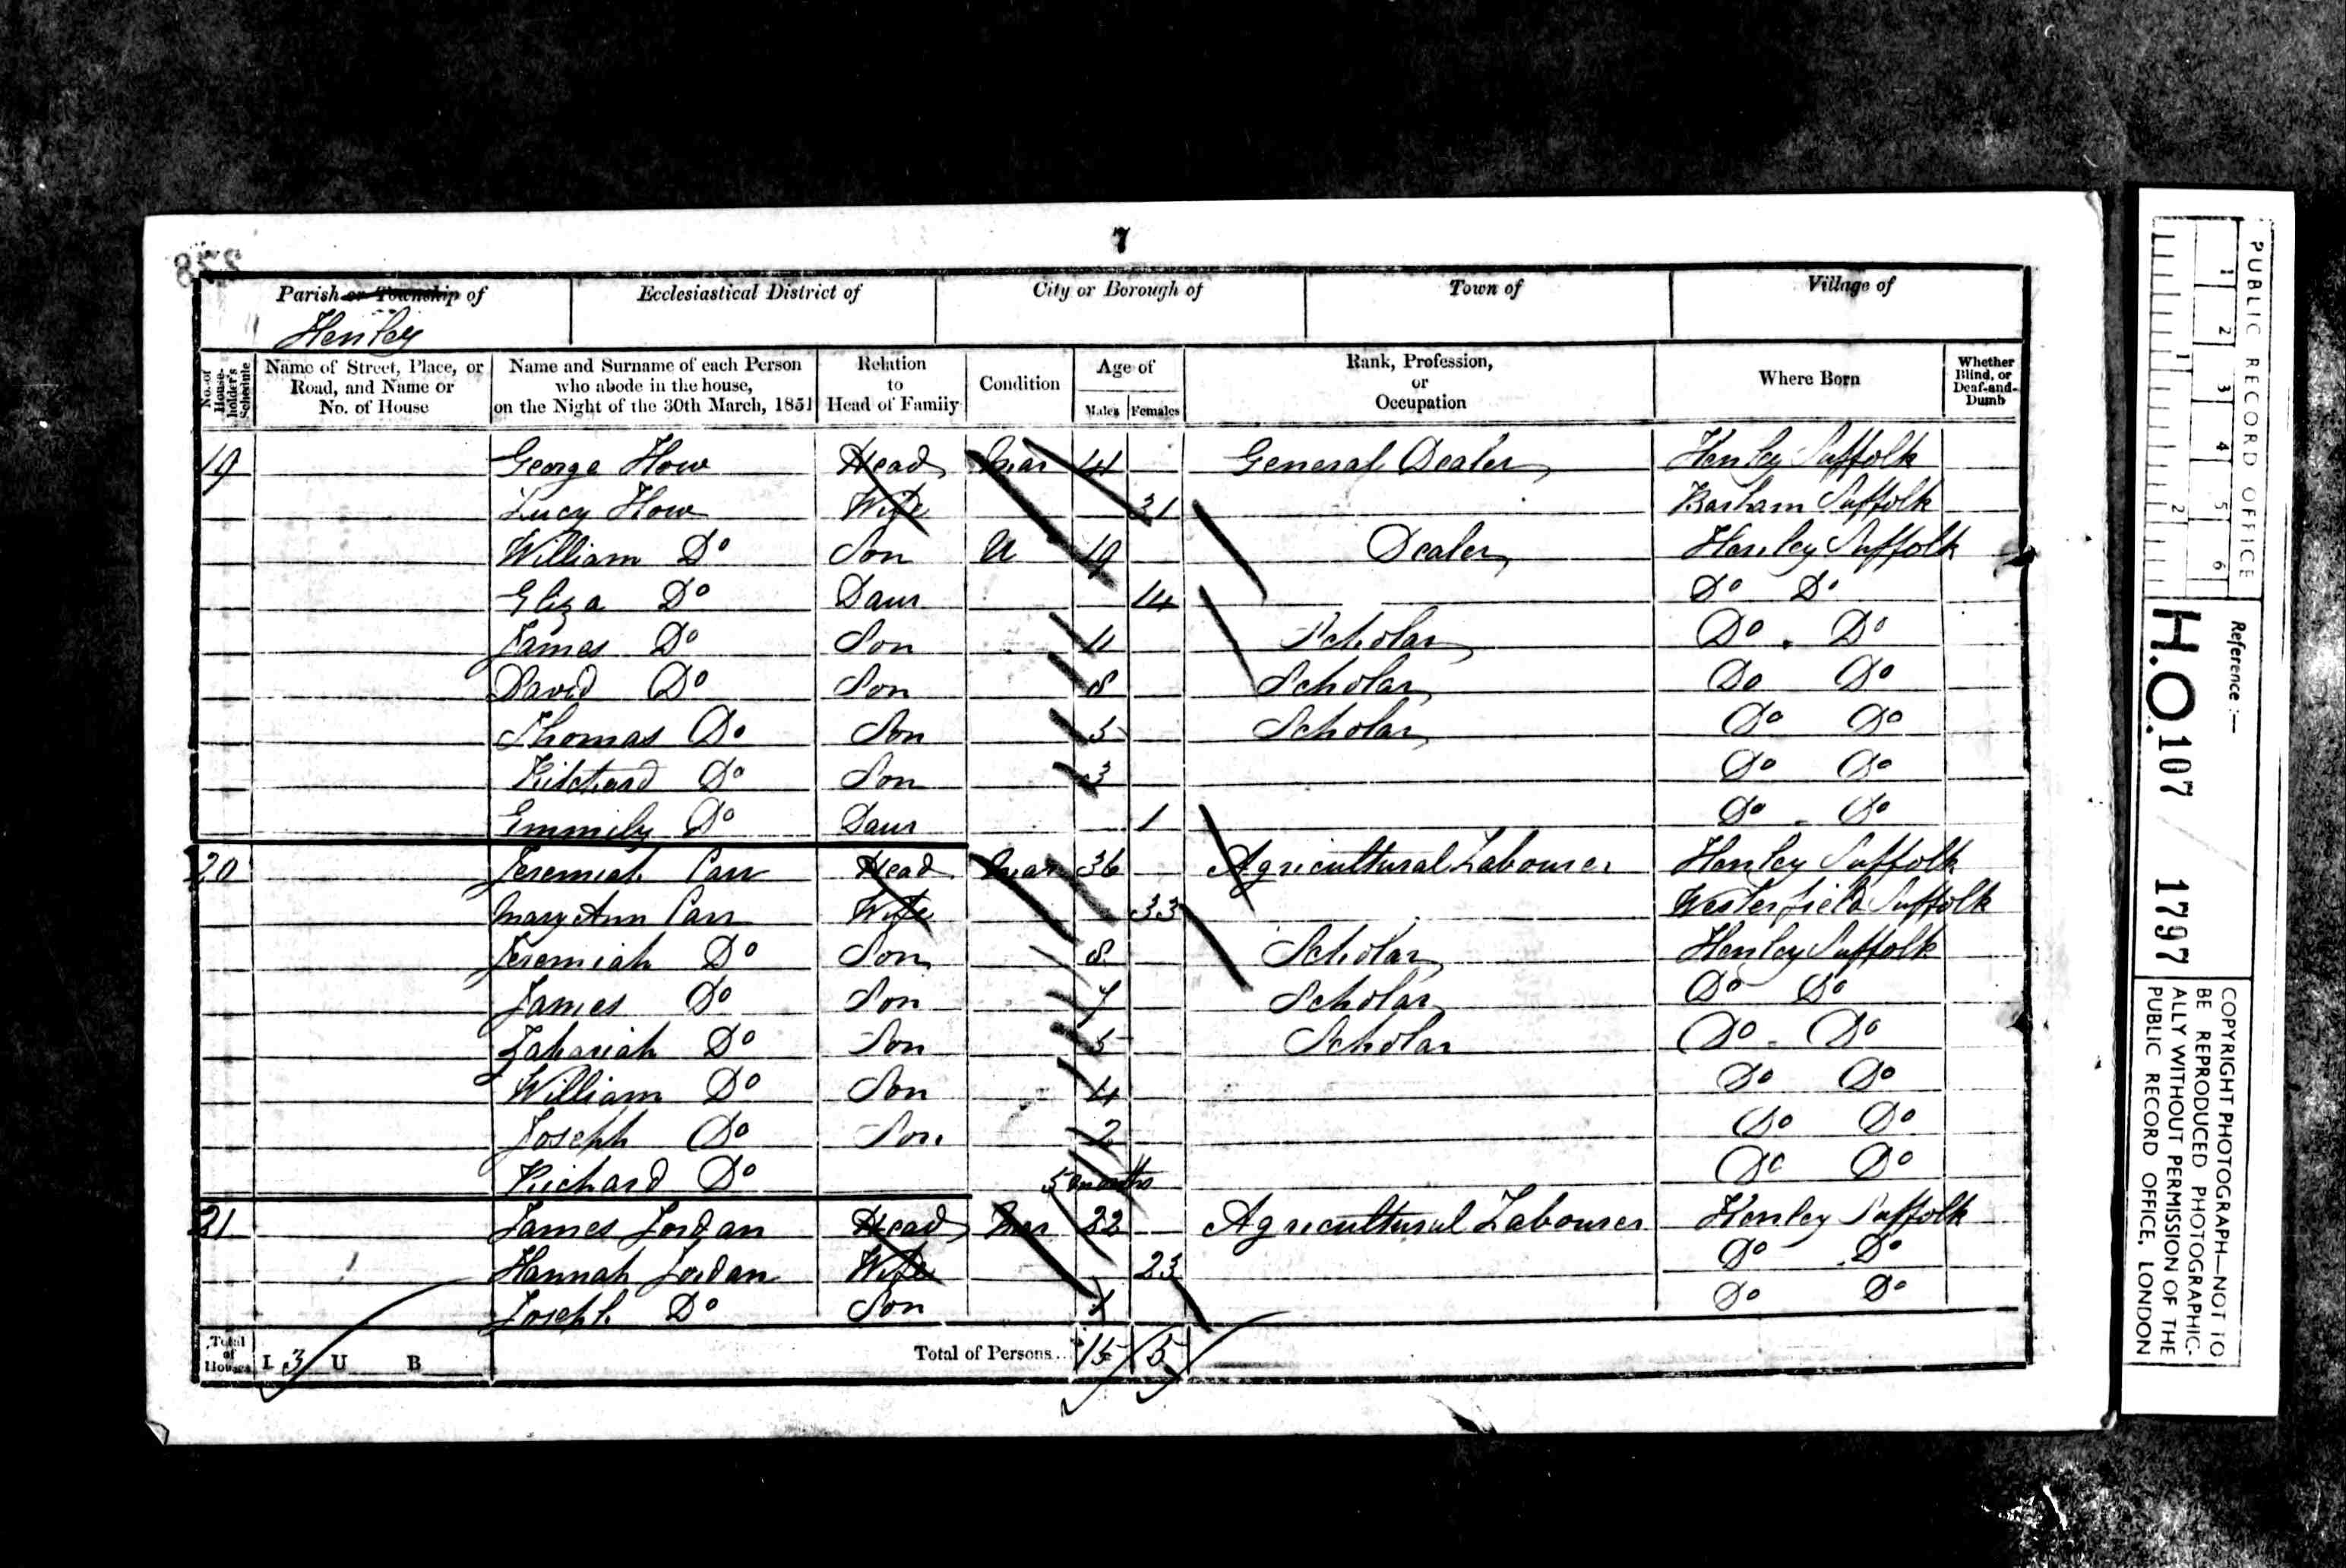 7
Parish or Township of Ecclesiastical District of City or Borough of Town of Village of
Henley
No. of House-holder's Schedule
Name of Street, Place, or Road, and Name or No. of House
Name and Surname of each Person who abode in the house, on the Night of the 30th March, 1851
Relation to Head of Family
Condition
Age of
Males Females
Rank, Profession, or Occupation
Where Born
Whether Blind, or Deaf-and-Dumb
19 George How Head Mar General Dealer Henley Suffolk
Lucy How Wife 31 Suffolk
William Do Son U 19 Dealer Henley Suffolk
Eliza Do Daur 14 Do Do
James Do Son 11 Scholar Do Do
David Do Son 8 Scholar Do Do
Thomas Do Son 5 Scholar Do Do
Do Son 3 Do Do
Emmily Do Daur 1 Do Do
20 Jeremiah Carr Head Mar 36 Agricultural Labourer Henley Suffolk
Mary Ann Carr Wife 33 Westerfield Suffolk
Jeremiah Do Son 8 Scholar Henley Suffolk
James Do Son 7 Scholar Do Do
Zahariah Do Son 5 Scholar Do Do
William Do Son 4 Do Do
Joseph Do Son 2 Do Do
Richard Do 5 months Do Do
21 James Jordan Head Mar 22 Agricultural Labourer Henley Suffolk
Hannah Jordan Wife 23 Do Do
Joseph Do Son 1 Do Do
Total of Houses I 3 U B Total of Persons... 15 5
PUBLIC RECORD OFFICE
1 2 3 4 5 6
1 2
Reference :—
H.O. 107 / 1797
COPYRIGHT PHOTOGRAPH—NOT TO
BE REPRODUCED PHOTOGRAPHIC-
ALLY WITHOUT PERMISSION OF THE
PUBLIC RECORD OFFICE, LONDON